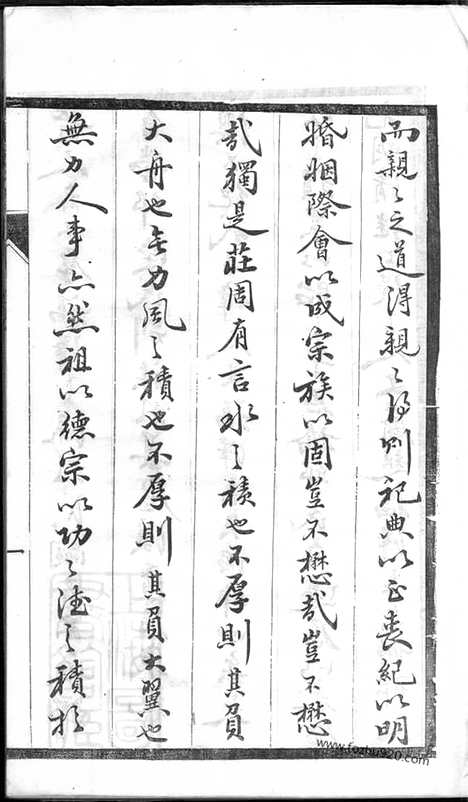 而親々之道得親々得則祀典以正喪紀以明
婚姻際會以成宗族以固豈不懋哉豈不懋
哉獨是莊周有言水之積也不厚則其負
大舟也無力風之積也不厚則其負大翼也
無力人事亦然祖以德宗以功々德之積於
www.fozhu920.com